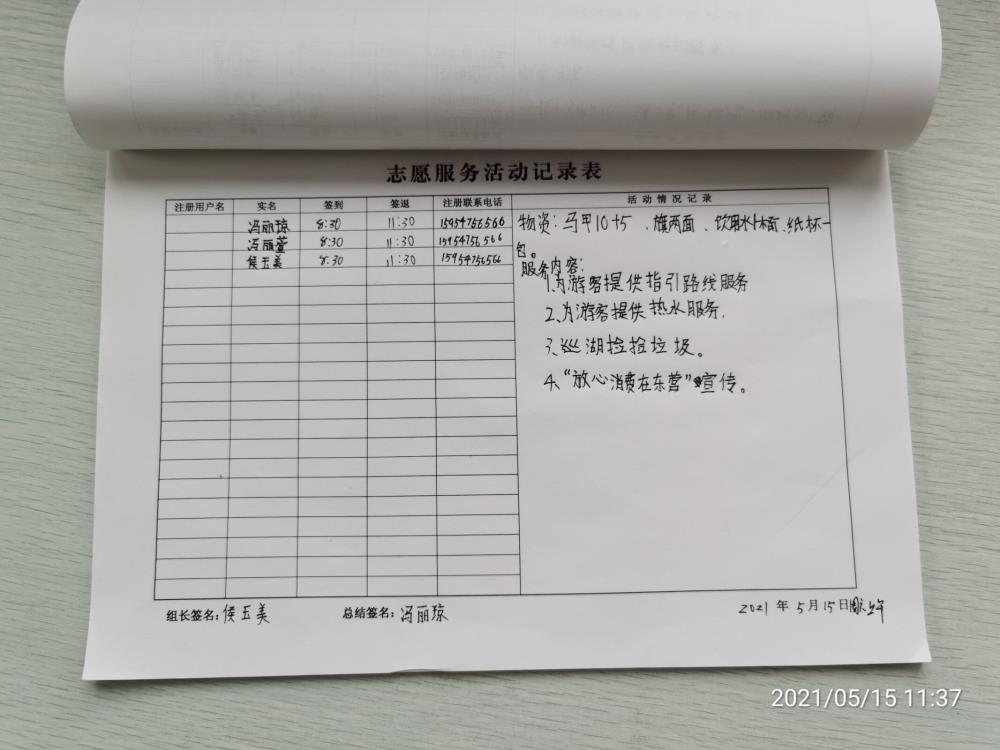 志愿服务活动记录表
注册用户名 实名 签到 签退 注册联系电话 活动情况记录
冯丽琼 8:30 11:30 15954756566
冯丽萱 8:30 11:30 15954756566
侯玉美 8:30 11:30 15954756566
物资:马甲10+5、旗两面、饮用水1桶、纸杯一
包。
服务内容:
1、为游客提供指引路线服务
2、为游客提供热水服务.
3、巡湖捡捡垃圾。
4、“放心消费在东营”宣传。
组长签名:侯玉美 总结签名:冯丽琼 2021年5月15日 上午
2021/05/15 11:37